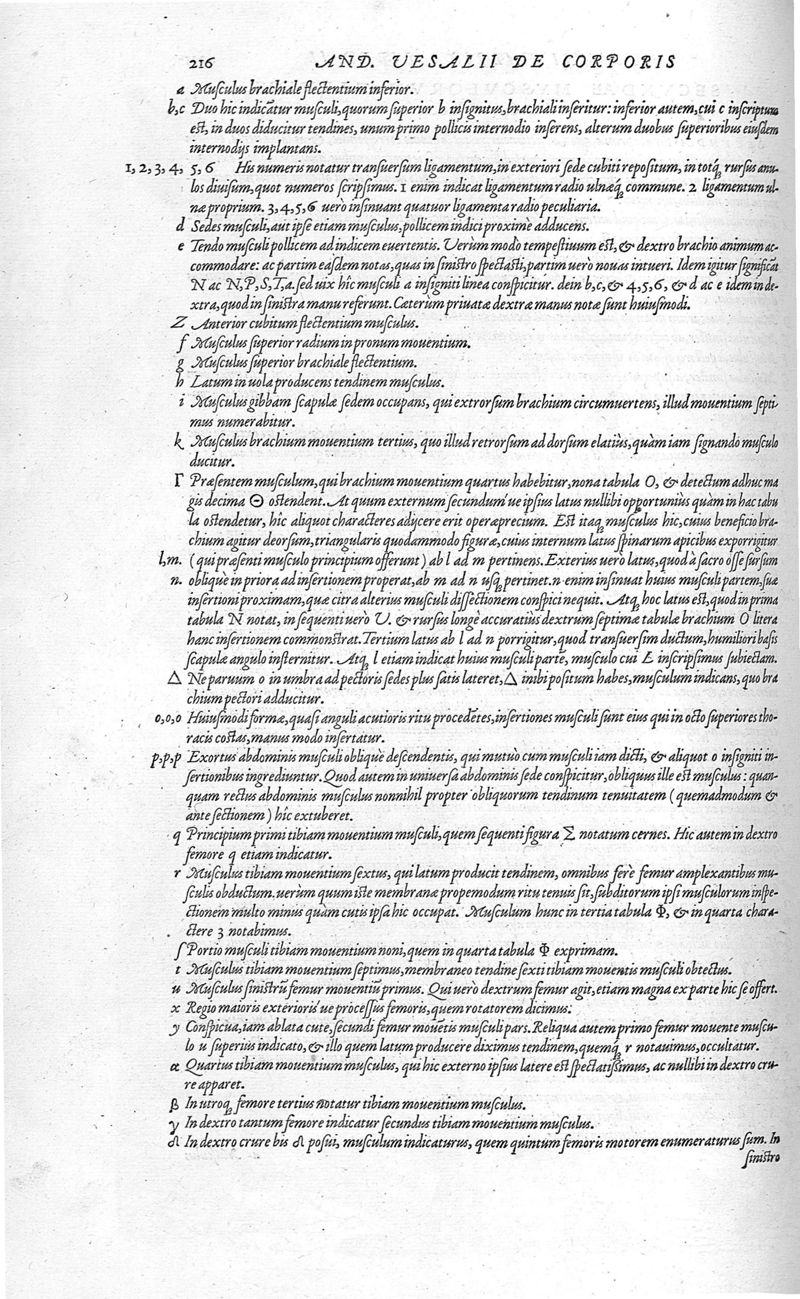 216 AND. VESALII DE CORPORIS
a Musculus brachiale flectentium inferior.
b,c Duo hic indicãtur musculi, quorum superior b insignitus, brachiali inseritur: inferior autem, cui c inscriptum
est, in duos diducitur tendines, unum primo pollicis internodio inserens, alterum duobus superioribus eiusdem
internodijs implantans.
1, 2, 3, 4, 5, 6 His numeris notatur transuersum ligamentum, in exteriori sede cubiti repositum, in totq́; rursus anu-
los diuisum, quot numeros scripsimus. 1 enim indicat ligamentum radio ulnæq́; commune. 2 ligamentum ul-
næ proprium. 3,4,5,6 uerò insinuant quatuor ligamenta radio peculiaria.
d Sedes musculi, aut ipse etiam musculus, pollicem indici proximè adducens.
e Tendo musculi pollicem ad indicem euertentis. Verùm modo tempestiuum est, & dextro brachio animum ac-
commodare: ac partim easdem notas, quas in sinistro spectasti, partim uerò nouas intueri. Idem igitur significãt
N ac N, P, S, T, a. sed uix hîc musculi a insigniti linea conspicitur. dein b, c, & 4, 5, 6, & d ac e idem in de-
xtra, quod in sinistra manu referunt. Cæterùm priuatæ dextræ manus notæ sunt huiusmodi.
Z Anterior cubitum flectentium musculus.
f Musculus superior radium in pronum mouentium.
g Musculus superior brachiale flectentium.
h Latum in uola producens tendinem musculus.
i Musculus gibbam scapulæ sedem occupans, qui extrorsum brachium circumuertens, illud mouentium septi-
mus numerabitur.
k Musculus brachium mouentium tertius, quo illud retrorsum ad dorsum elatiùs, quàm iam signando musculo
ducitur.
Γ Præsentem musculum, qui brachium mouentium quartus habebitur, nona tabula O, & detectum adhuc ma
gis decima Θ ostendent. At quum externum secundum'ue ipsius latus nullibi opportuniùs quàm in hac tabu
la ostendetur, hîc aliquot characteres adijcere erit operæprecium. Est itaq; musculus hic, cuius beneficio bra-
chium agitur deorsum, triangularis quodammodo figuræ, cuius internum latus spinarum apicibus exporrigitur
l,m. (qui præsenti musculo principium offerunt) ab l ad m pertinens. Exterius uerò latus, quod à sacro osse sursum
n. obliquè in priora ad insertionem properat, ab m ad n usq; pertinet. n enim insinuat huius musculi partem, suæ
insertioni proximam, quæ citra alterius musculi dissectionem conspici nequit. Atq; hoc latus est, quod in prima
tabula N notat, in sequenti uerò V. & rursus longè accuratiùs dextrum septimæ tabulæ brachium O litera
hanc insertionem commonstrat. Tertium latus ab l ad n porrigitur, quod transuersim ductum, humiliori basis
scapulæ angulo insternitur. Atq; l etiam indicat huius musculi partẽ, musculo cui L inscripsimus subiectam.
Δ Ne paruum o in umbra ad pectoris sedes plus satis lateret, Δ inibi positum habes, musculum indicans, quo bra
chium pectori adducitur.
o,o,o Huiusmodi formæ, quasi anguli acutioris ritu procedẽtes, insertiones musculi sunt eius qui in octo superiores tho-
racis costas, manus modo insertatur.
p,p,p Exortus abdominis musculi obliquè descendentis, qui mutuò cum musculi iam dicti, & aliquot o insigniti in-
sertionibus ingrediuntur. Quod autem in uniuersa abdominis sede conspicitur, obliquus ille est musculus: quan-
quam rectus abdominis musculus nonnihil propter obliquorum tendinum tenuitatem (quemadmodum &
ante sectionem) hîc extuberet.
q Principium primi tibiam mouentium musculi, quem sequenti figura Σ notatum cernes. Hic autem in dextro
femore q etiam indicatur.
r Musculus tibiam mouentium sextus, qui latum producit tendinem, omnibus ferè femur amplexantibus mu-
sculis obductum. uerùm quum iste membranæ propemodum ritu tenuis sit, subditorum ipsi musculorum inspe-
ctionem multo minus quàm cutis ipsa hic occupat. Musculum hunc in tertia tabula Φ, & in quarta chara-
ctere 3 notabimus.
ſ Portio musculi tibiam mouentium noni, quem in quarta tabula Φ exprimam.
t Musculus tibiam mouentium septimus, membraneo tendine sexti tibiam mouentis musculi obtectus.
u Musculus sinistrũ femur mouentiũ primus. Qui uerò dextrum femur agit, etiam magna ex parte hic se offert.
x Regio maioris exterioris'ue processus femoris, quem rotatorem dicimus.
y Conspicua, iam ablata cute, secundi femur mouẽtis musculi pars. Reliqua autem primo femur mouente muscu-
lo u superiùs indicato, & illo quem latum producere diximus tendinem, quemq́; r notauimus, occultatur.
α Quartus tibiam mouentium musculus, qui hic externo ipsius latere est spectatissimus, ac nullibi in dextro cru-
re apparet.
β In utroq; femore tertius notatur tibiam mouentium musculus.
γ In dextro tantum femore indicatur secundus tibiam mouentium musculus.
δ In dextro crure bis δ posui, musculum indicaturus, quem quintum femoris motorem enumeraturus sum. In
sinistro